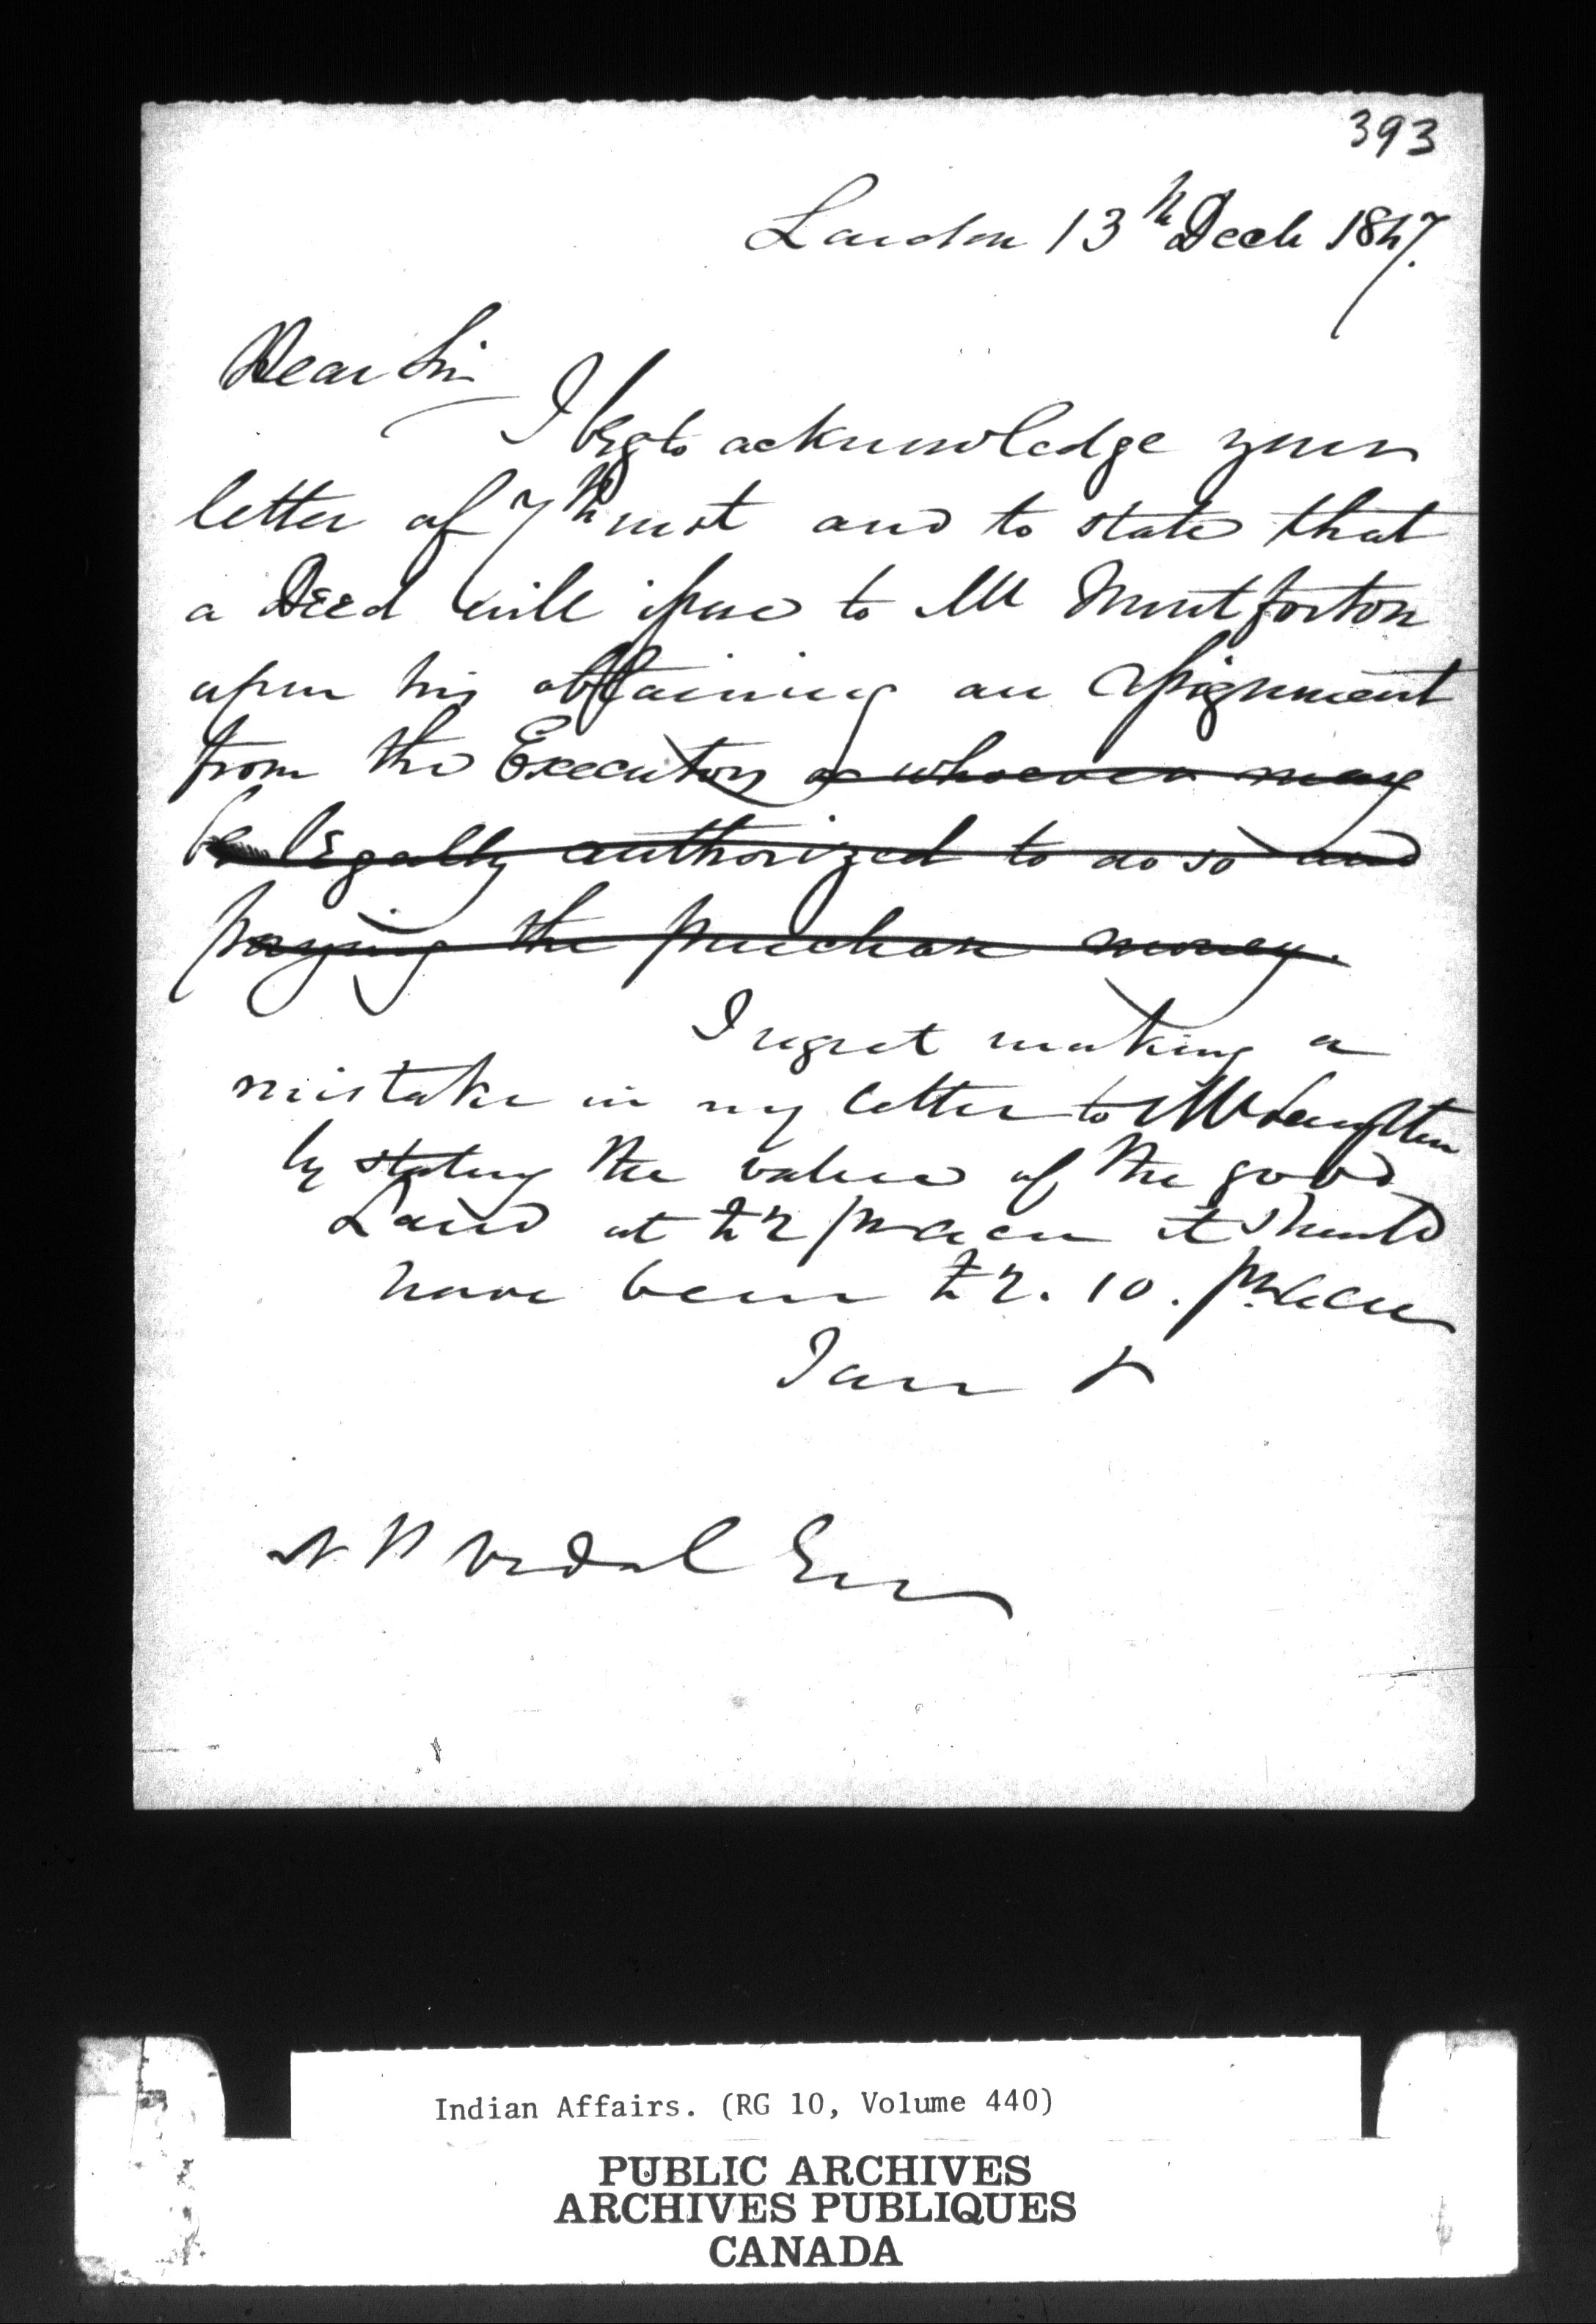 393
London 13th Decb 1847.
Dear Sir
I beg to acknowledge your
letter of 7th inst and to state that
a Deed will issue to Mr Montforton
upon his obtaining an Assignment
from the Executors or whoever may
be legally authorized to do so and
paying the purchase money.
I regret making a
mistake in my letter to Mr
by stating the value of the good
Land at £2 pr acre it should
have been £2. 10. pr acre
I am &
Vidal Esq
Indian Affairs. (RG 10, Volume 440)
PUBLIC ARCHIVES
ARCHIVES PUBLIQUES
CANADA